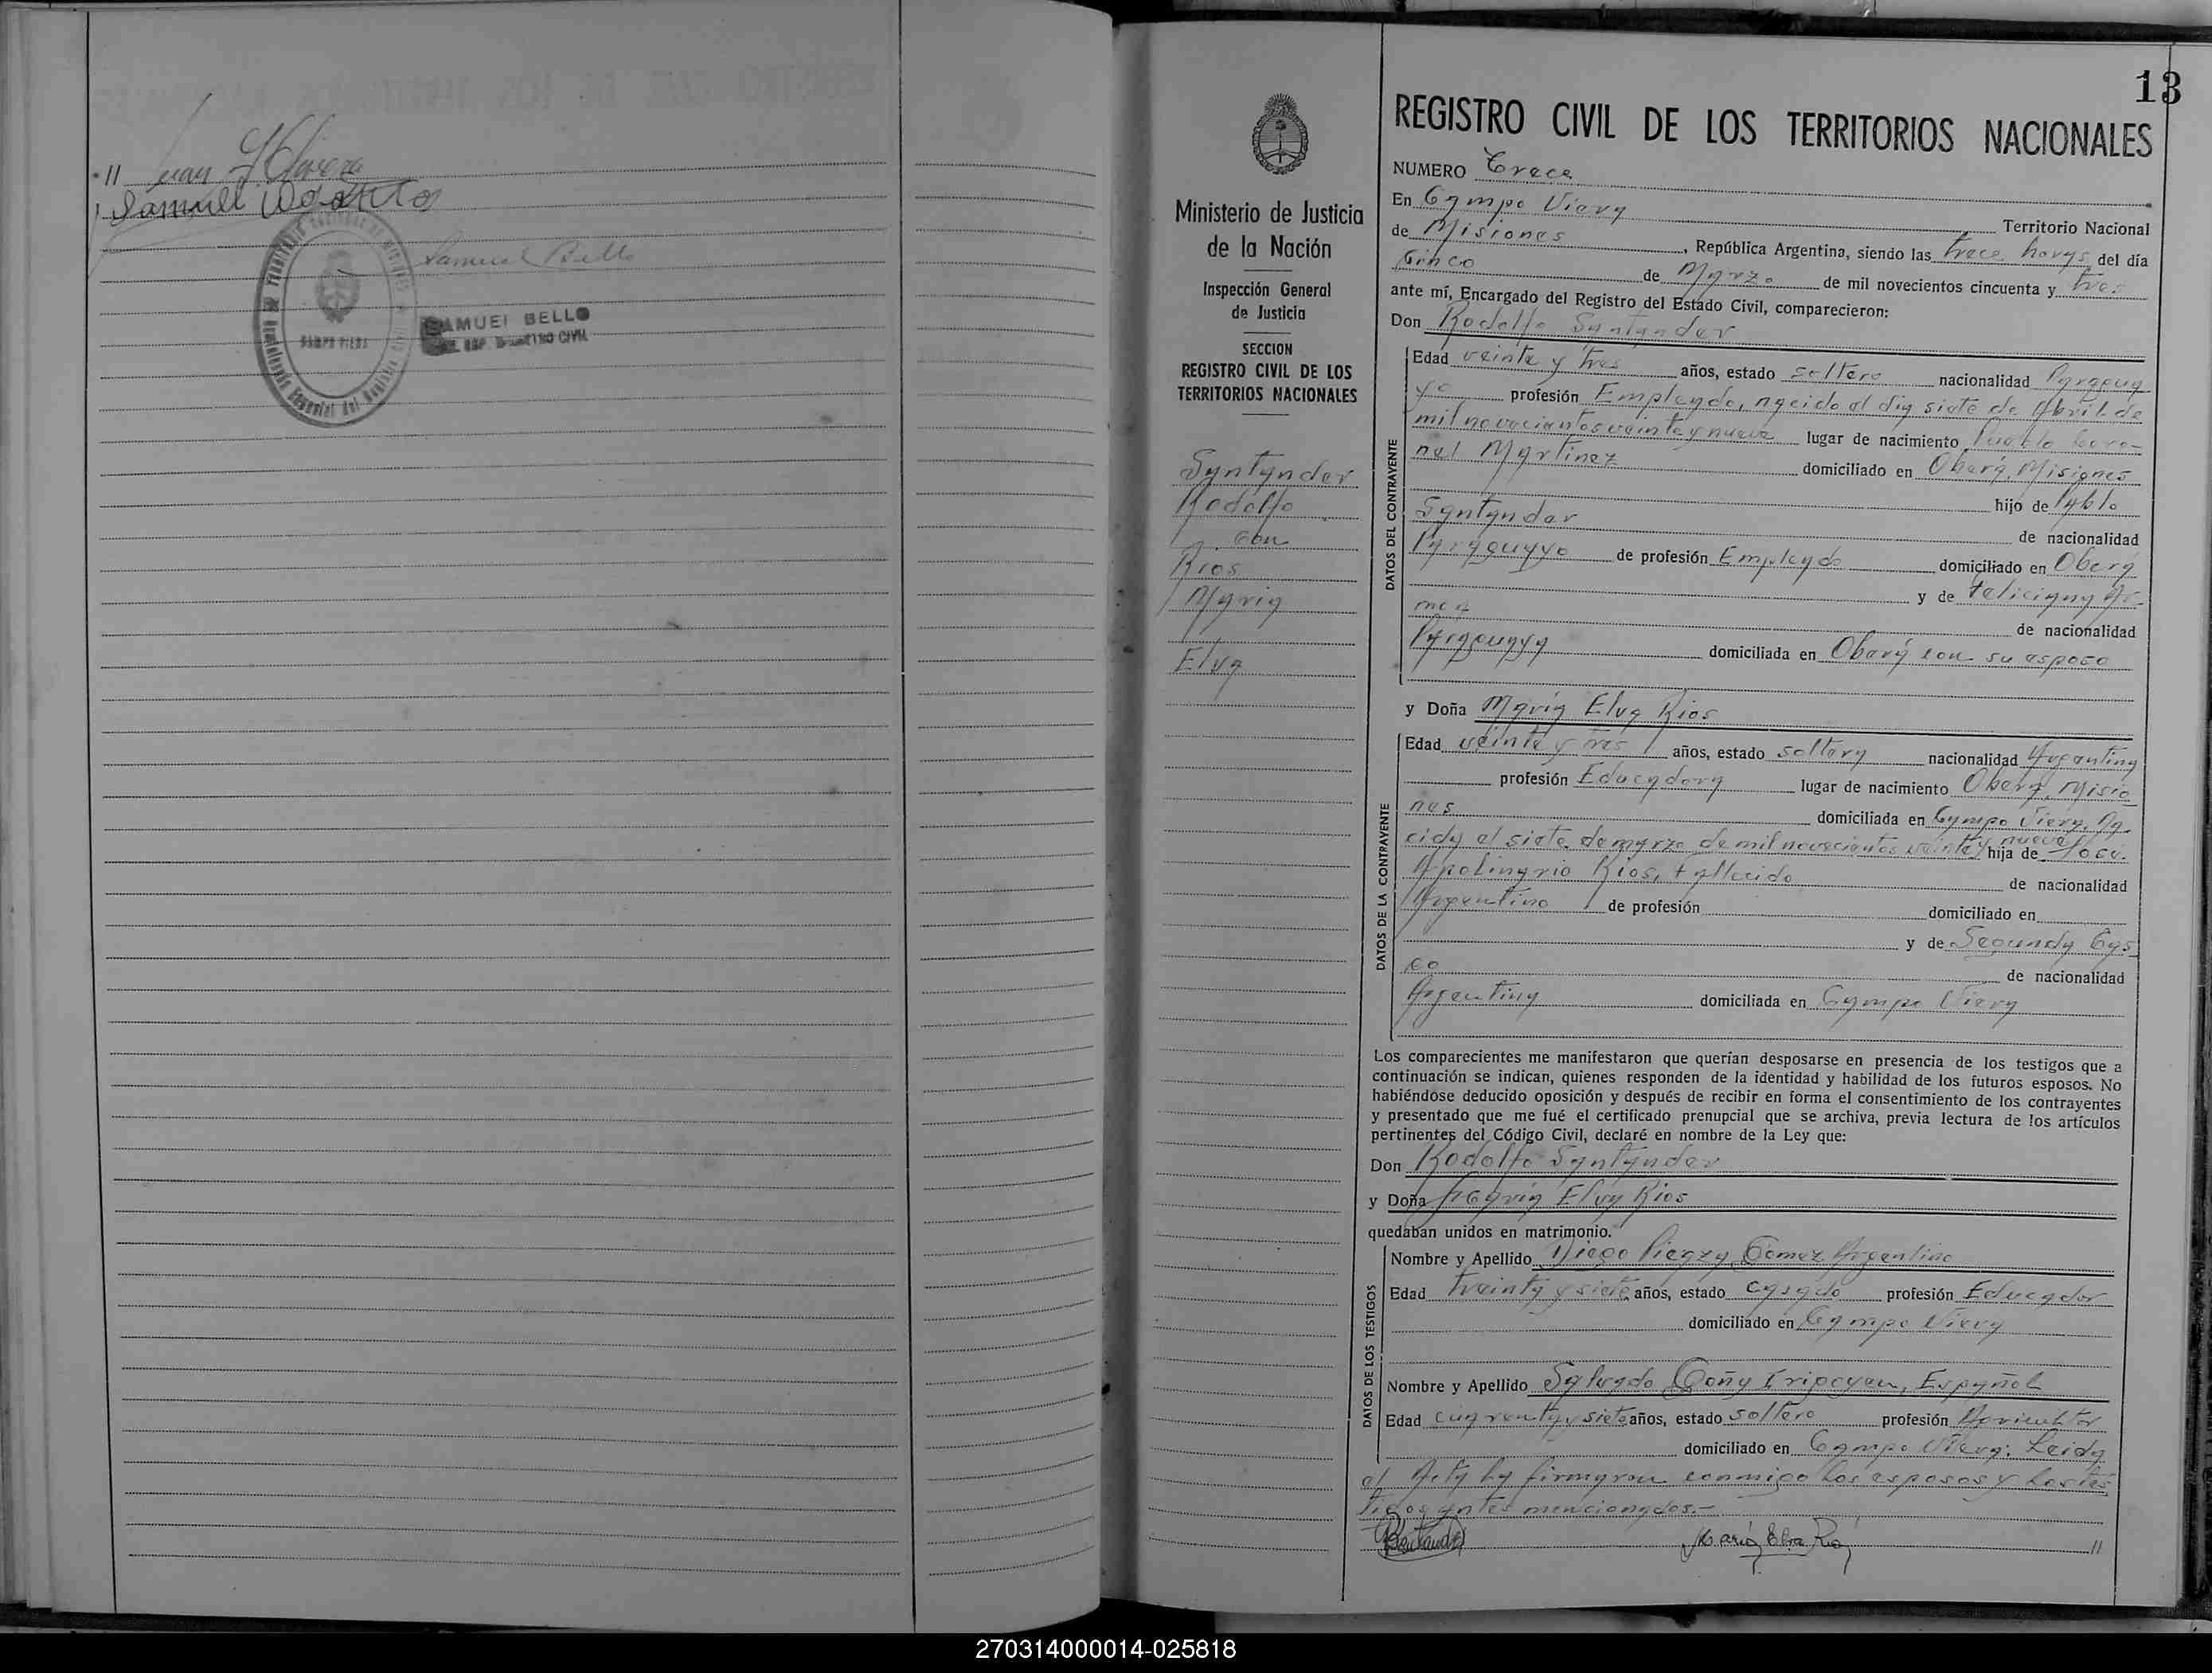 ·// Juan
Samuel
Samuel Bello
CAMPO VIERA
SAMUEL BELLO
REGISTRO CIVIL
13
Ministerio de Justicia
de la Nación
Inspección General
de Justicia
SECCION
REGISTRO CIVIL DE LOS
TERRITORIOS NACIONALES
Santander
Rodolfo
con
Rios
Maria
Elva
REGISTRO CIVIL DE LOS TERRITORIOS NACIONALES
NUMERO Trece
En Campo Viera Territorio Nacional
de Misiones, República Argentina, siendo las trece horas del día
Cinco de Marzo de mil novecientos cincuenta y tres
ante mí, Encargado del Registro del Estado Civil, comparecieron:
Don Rodolfo Santander
DATOS DEL CONTRAYENTE
Edad veinte y tres años, estado soltero nacionalidad Paraguay
yo profesión Empleado, nacido el dia siete de Abril de
mil novecientos veinte y nueve lugar de nacimiento Pueblo Coro-
nel Martinez domiciliado en Oberá, Misiones
hijo de Pablo
Santander de nacionalidad
Paraguayo de profesión Empleado domiciliado en Oberá
y de Feliciana Ar-
moa de nacionalidad
Paraguaya domiciliada en Oberá con su esposo
y Doña Maria Elva Rios
DATOS DE LA CONTRAYENTE
Edad veinte y tres años, estado soltera nacionalidad Argentina
profesión Educadora lugar de nacimiento Oberá, Misio
nes domiciliada en Campo Viera, Na-
cida el siete de marzo de mil novecientos veinte y nueve hija de José
Apolinario Rios, fallecido de nacionalidad
Argentino de profesión domiciliado en
y de Segunda Cas
co de nacionalidad
Argentina domiciliada en Campo Viera
Los comparecientes me manifestaron que querían desposarse en presencia de los testigos que a
continuación se indican, quienes responden de la identidad y habilidad de los futuros esposos. No
habiéndose deducido oposición y después de recibir en forma el consentimiento de los contrayentes
y presentado que me fué el certificado prenupcial que se archiva, previa lectura de los artículos
pertinentes del Código Civil, declaré en nombre de la Ley que:
Don Rodolfo Santander
y Doña Maria Elva Rios
quedaban unidos en matrimonio.
DATOS DE LOS TESTIGOS
Nombre y Apellido Diego Gomez, Argentino
Edad treinta y siete años, estado casado profesión Educador
domiciliado en Campo Viera
Nombre y Apellido Salvado Goñy Iripoyen, Español
Edad cuarenta y siete años, estado soltero profesión Agricultor
domiciliado en Campo Viera; Leida
el Acta la firmaron conmigo los esposos y los tes
tigos antes mencionados.-
RSantander María Elva Rios //
270314000014-025818